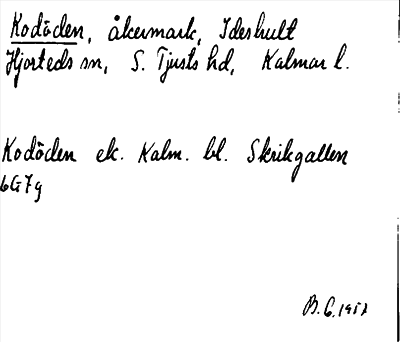 Kodöden, åkermark, Ideshult
Hjorteds sn, S. Tjusts hd, Kalmar l.
Kodöden ek. Kalm. bl. Skrikgallen
6G7g
B. G. 1957